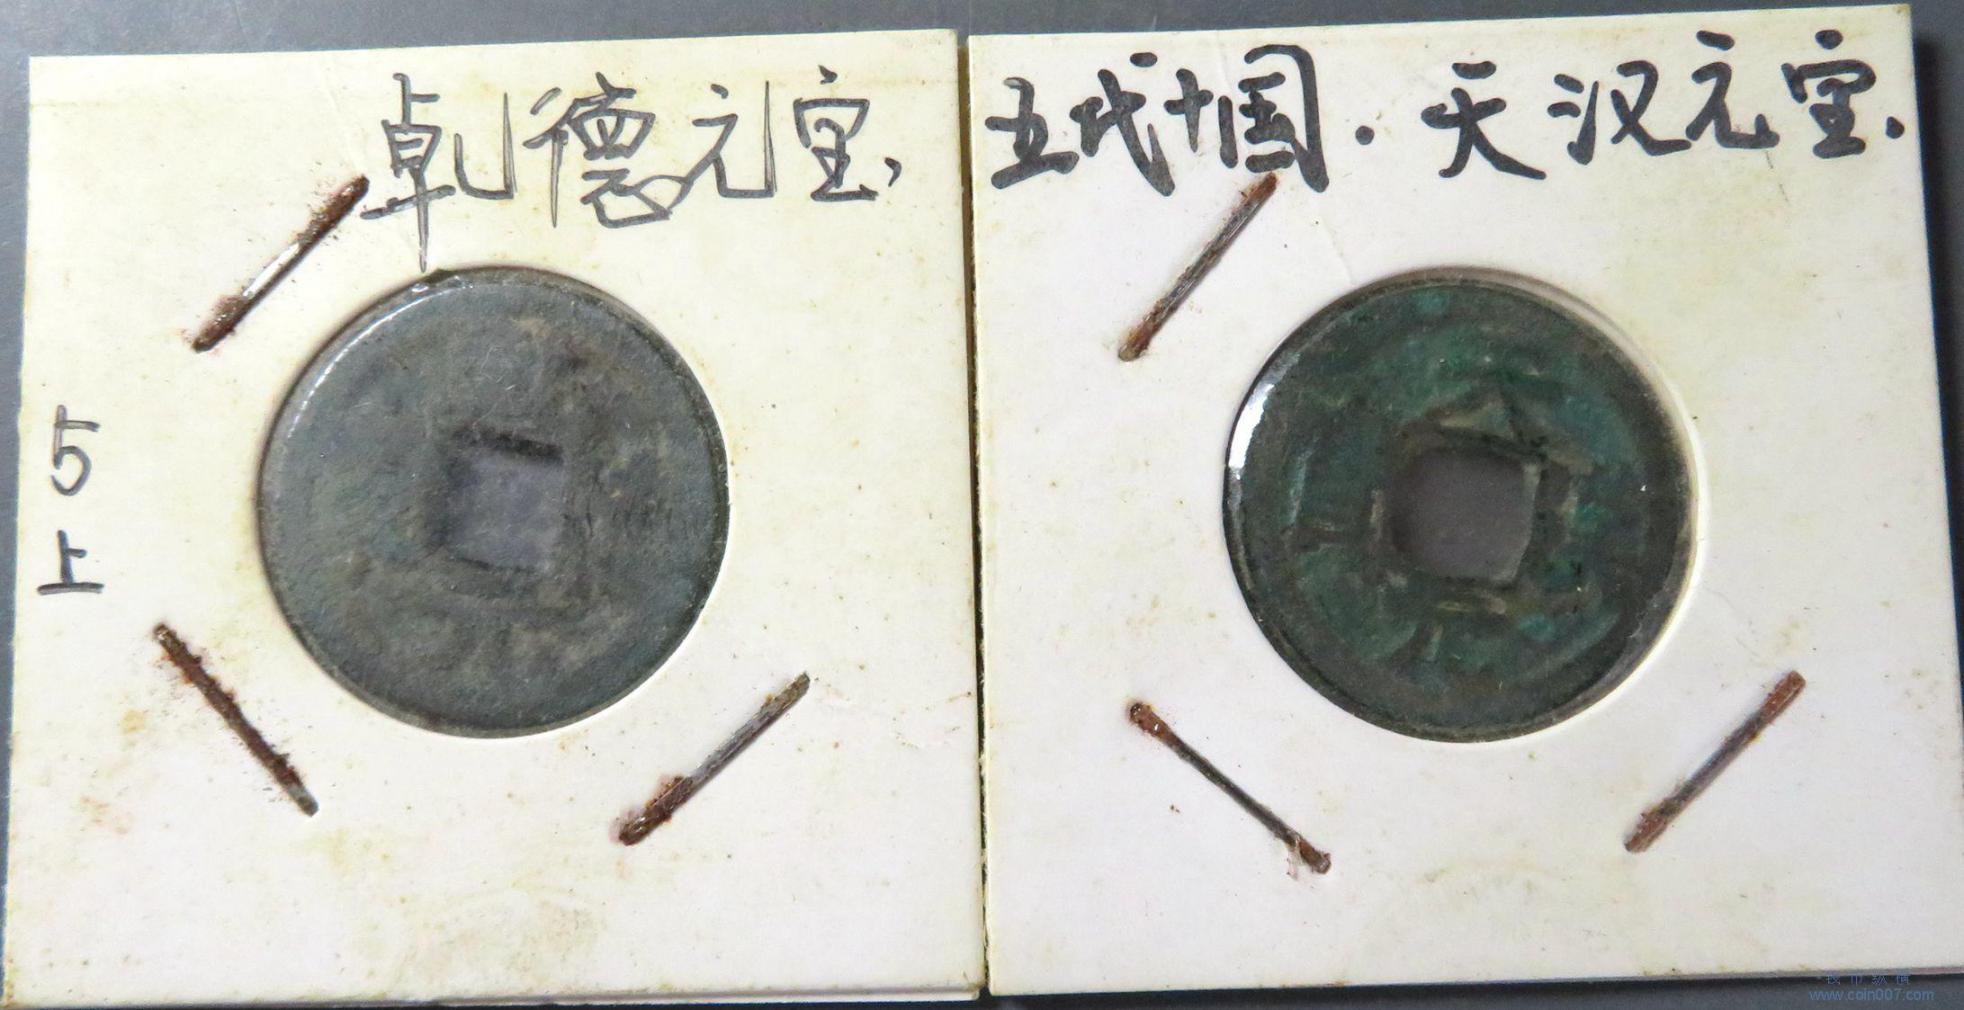 乾德元宝、
5
上
五代十国·天汉元宝.
钱币纵横
www.coin007.com